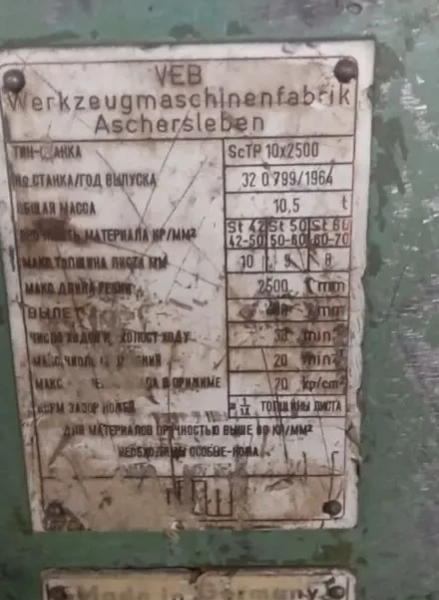 VEB
Werkzeugmaschinenfabrik
Aschersleben
ТИП-СТАНКА ScTP 10x2500
№ СТАНКА/ГОД ВЫПУСКА 32 0799/1964
ОБЩАЯ МАССА 10,5 t
МАТЕРИАЛА КР/ММ² St 42 St 50 St 60
42-50 50-60 60-70
МАКС. ТОЛЩИНА ЛИСТА ММ 10 9 8
МАКС. ДЛИНА 2500 mm
ВЫЛЕТ mm
ЧИСЛО ХОДОВ min⁻¹
20 min⁻¹
МАКС 70 kp/cm²
ЗАЗОР НОЖЕЙ ТОЛЩИНЫ ЛИСТА
ДЛЯ МАТЕРИАЛОВ ПРОЧНОСТЬЮ ВЫШЕ КР/ММ²
НЕОБХОДИМЫ ОСОБЫЕ-НОЖА
Made in Germany